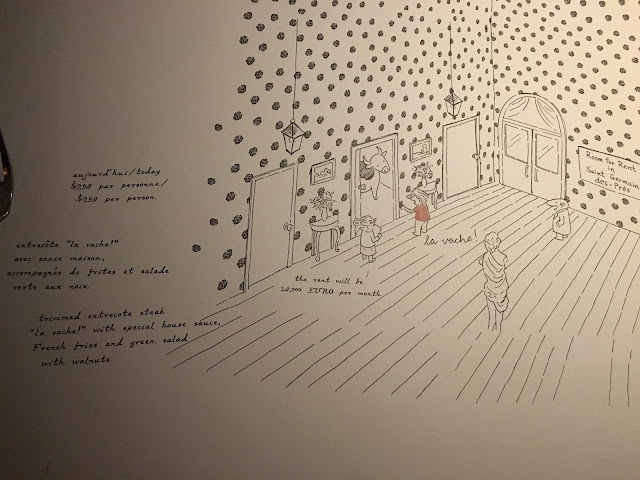 aujourd'hui/today
$298 par personne/
$298 per person.
entrecôte "la vache!"
avec sauce maison,
accompagnée de frites et salade
verte aux noix
trimmed entrecote steak
"la vache!" with special house sauce,
French fries and green salad
with walnuts.
the rent will be
28,000 EURO per month
la vache!
Room for Rent
in
Saint Germain
des-Prés